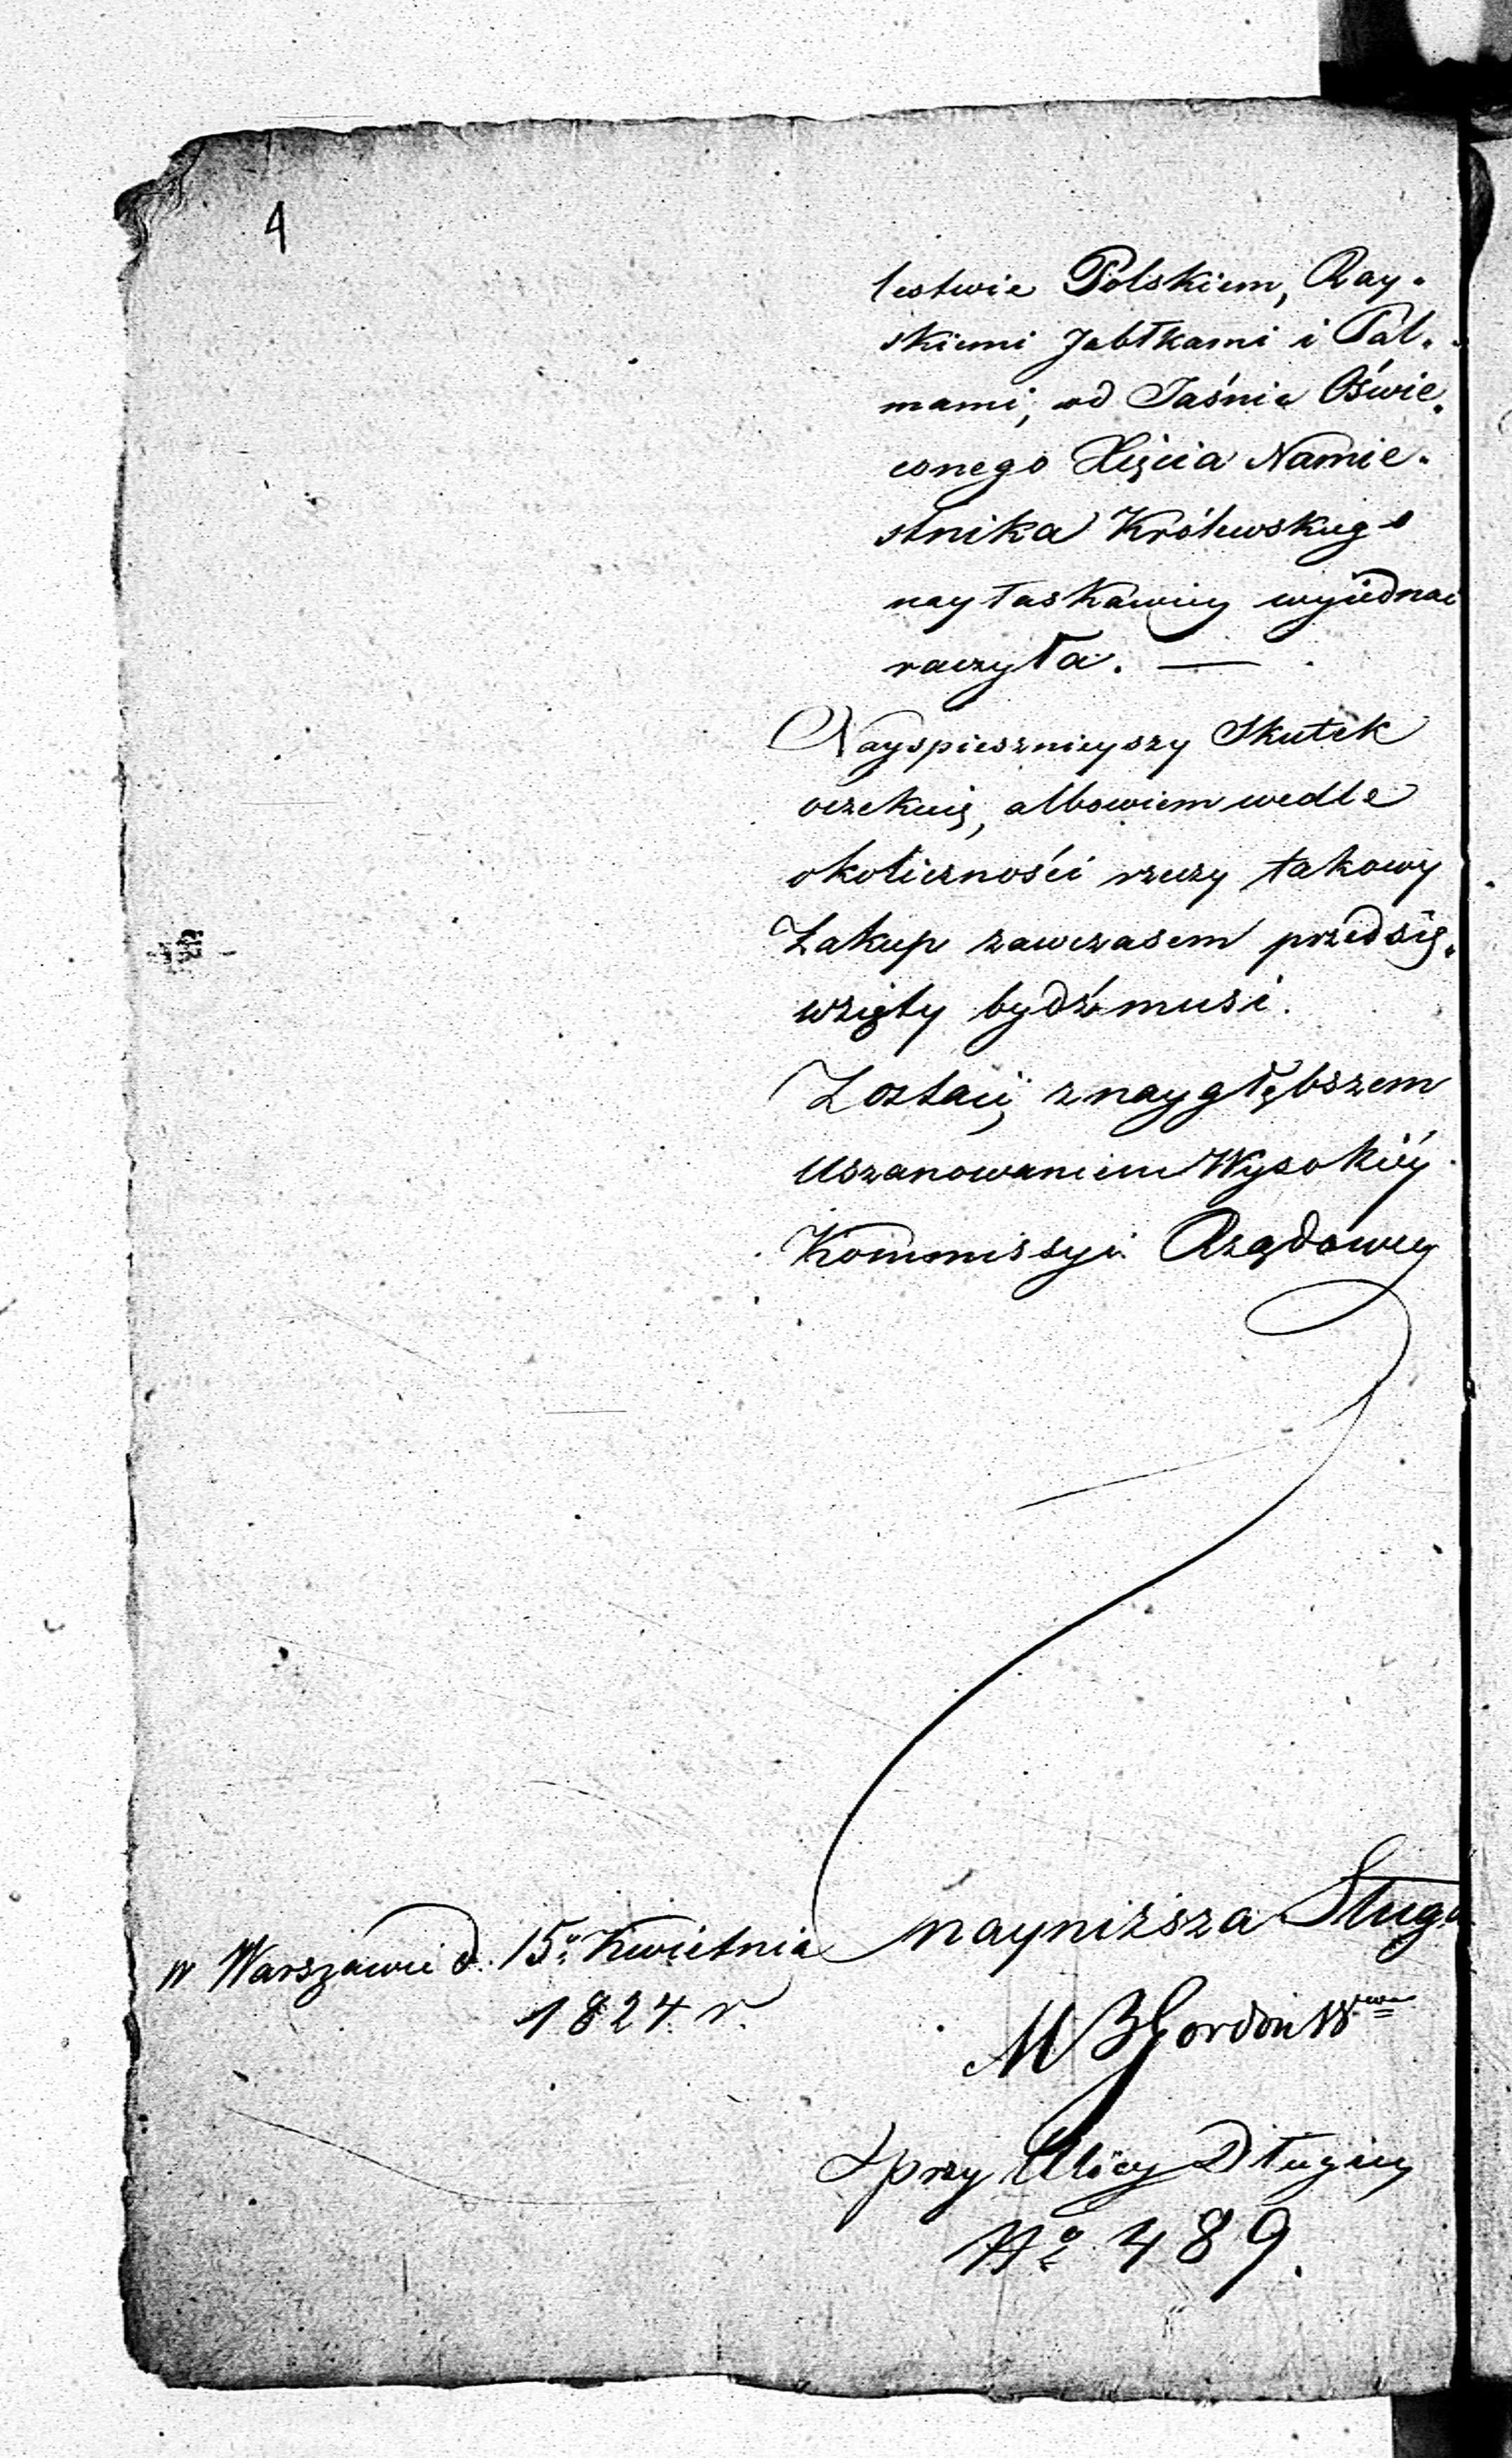 4
lestwie Polskiem, Ray-
skiemi Jabłkami i Pal-
mami, od Jaśnie Oświe-
conego Xięcia Namie-
stnika Królewskiego
nayłaskawiey wyiednać
raczyła. —
Nayspiesznieyszy Skutek
oczekuię, albowiem wedle
okoliczności rzeczy takowy
Zakup zawczasem przedsię-
wzięty bydź musi.
Zostaię z naygłębszem
Uszanowaniem Wysokiéy
Kommissyi Rządowey
nayniższa Sługa
w Warszawie d. 15º Kwietnia
1824 r.
M B Gordon W
przy Ulicy Długiey
Nº 489.